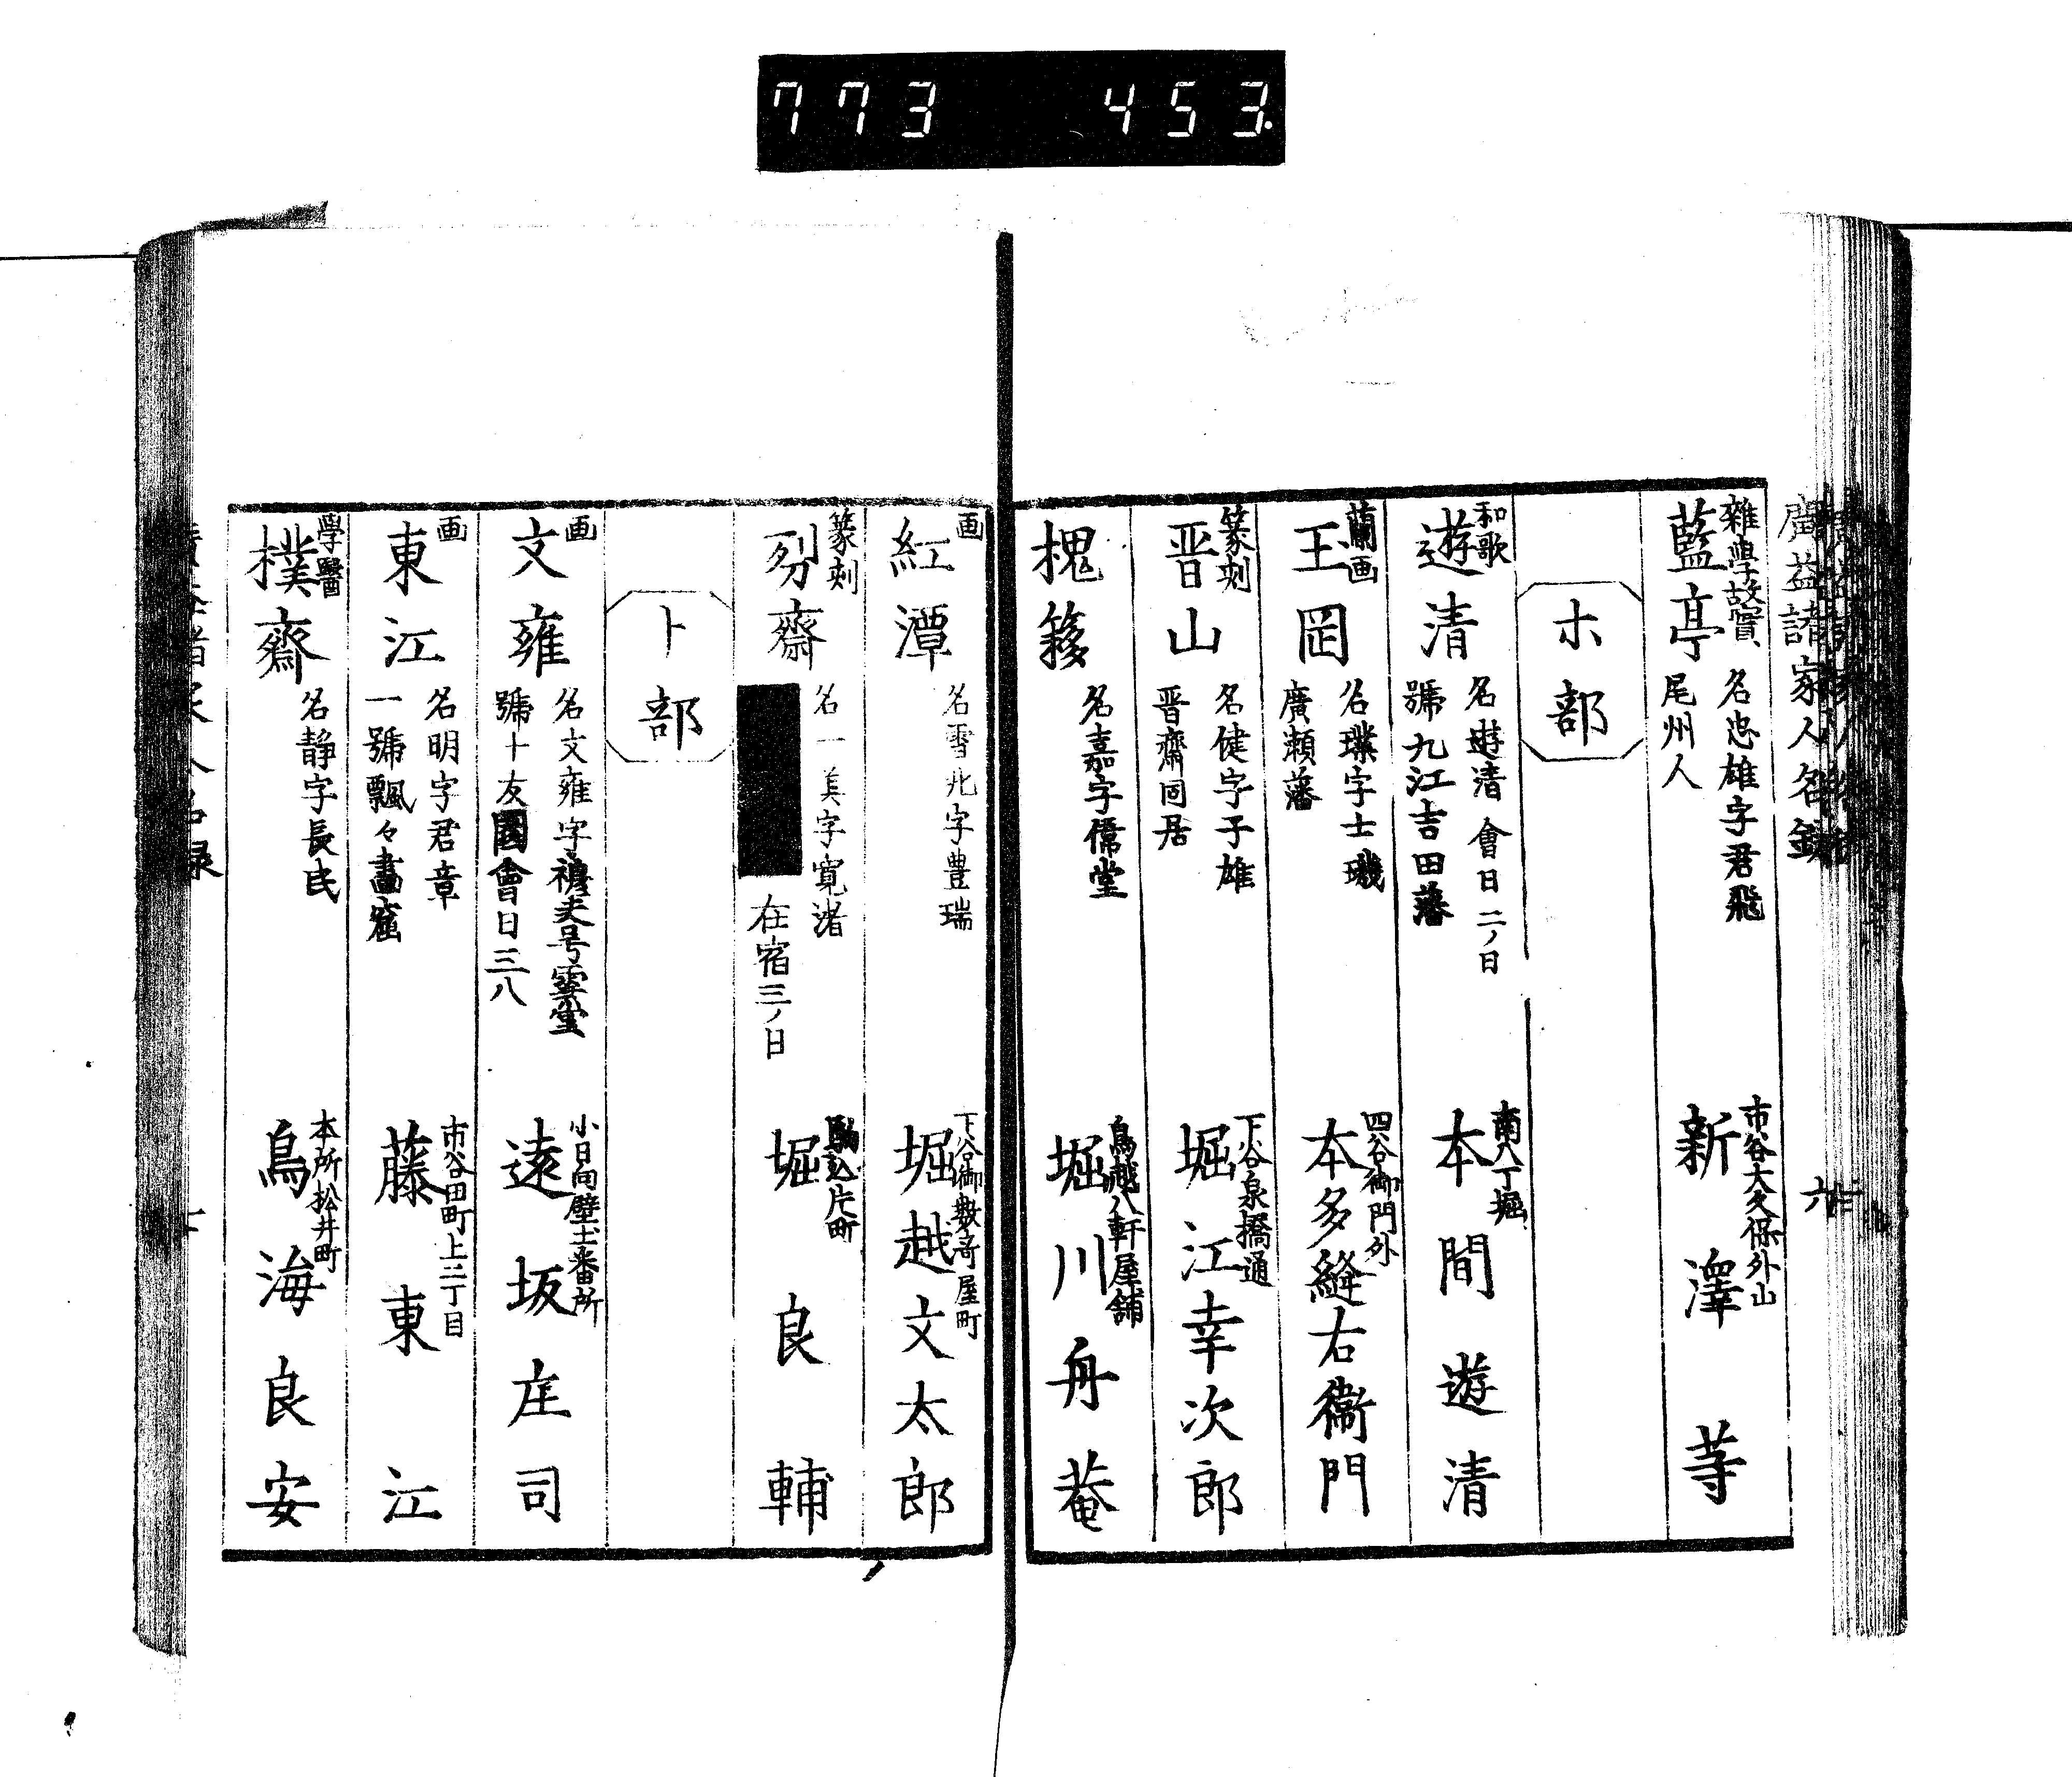 773 453.
廣益諸家人名録
雜學故實
藍亭
名忠雄字君飛
尾州人
市谷大久保外山
新澤䓁
ホ部
和歌
遊清
名遊清 會日二ノ日
號九江吉田藩
南八丁堀
本間遊清
蘭画
王岡
名璞字士璣
廣瀬藩
四谷御門外
本多縫右衞門
篆刻
晋山
名健字子雄
晋齋同居
下谷泉橋通
堀江幸次郎
槐
名嘉字儒堂
鳥越八軒屋舗
堀川舟菴
画
紅潭
名雪兆字豊瑞
下谷御數寄屋町
堀越文太郎
篆刻
齋
名一美字寛渚
在宿三ノ日
駒込片町
堀良輔
ト部
画
文雍
名文雍字穆夫号雲堂
號十友園會日三八
小日向壁土番所
遠坂庄司
画
東江
名明字君章
一號飄々畫窟
市谷田町上二丁目
藤東江
學醫
樸齋
名静字長民
本所松井町
鳥海良安